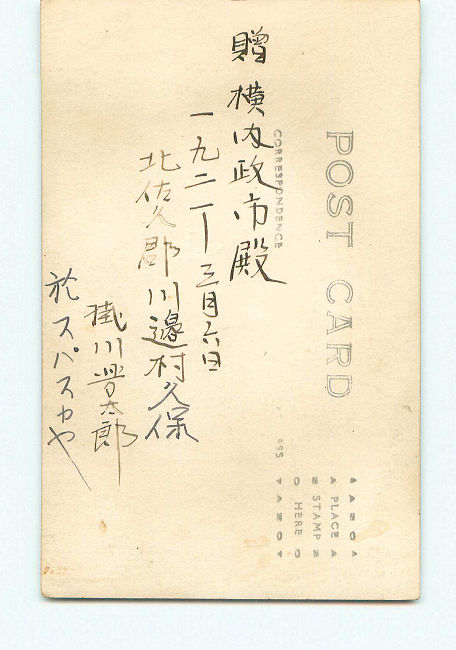 贈 横内政市殿
一九二一－三月六日
北佐久郡川邊村久保
掛川晋太郎
於 スパスカヤ
POST CARD
CORRESPONDENCE
ESS
AZO
PLACE
STAMP
HERE
AZO